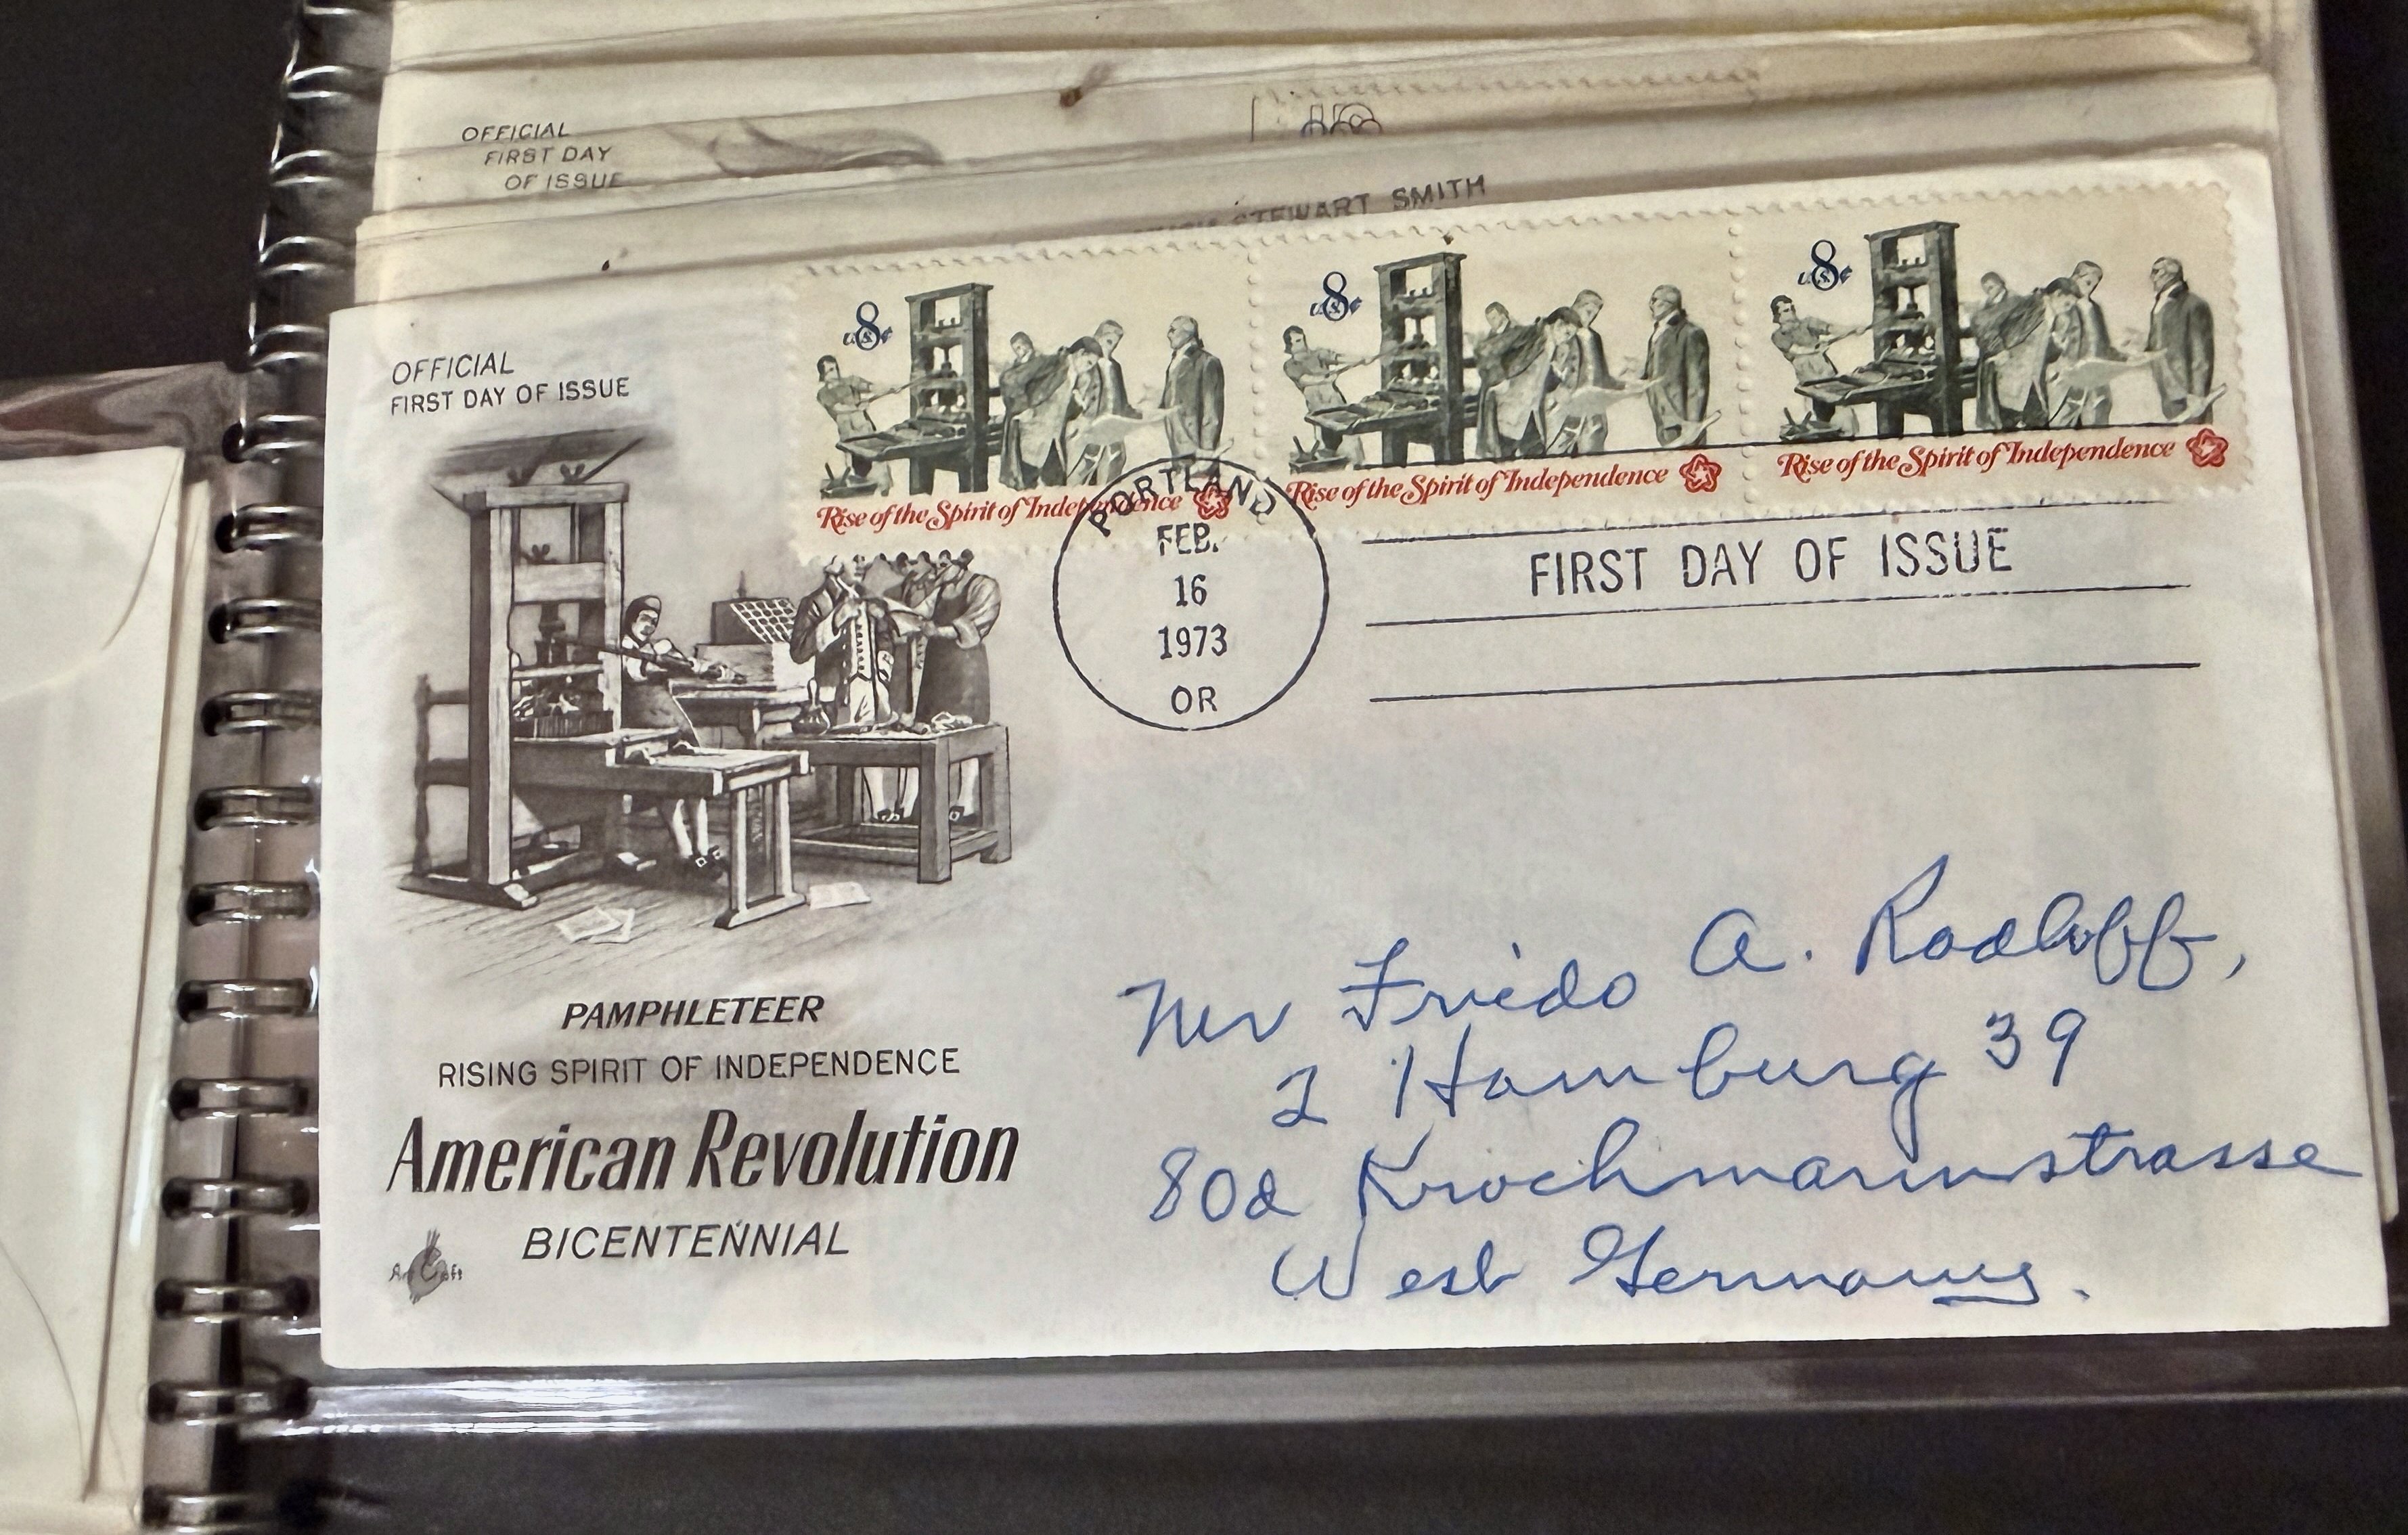 OFFICIAL
FIRST DAY
OF ISSUE
STEWART SMITH
OFFICIAL
FIRST DAY OF ISSUE
8
U.S. ¢
Rise of the Spirit of Independence
8
U.S. ¢
Rise of the Spirit of Independence
8
U.S. ¢
Rise of the Spirit of Independence
PORTLAND
FEB.
16
1973
OR
FIRST DAY OF ISSUE
PAMPHLETEER
RISING SPIRIT OF INDEPENDENCE
American Revolution
BICENTENNIAL
ArtCraft
Mr Friedo A. Radloff,
2 Hamburg 39
80a Krochmannstrasse
West Germany.